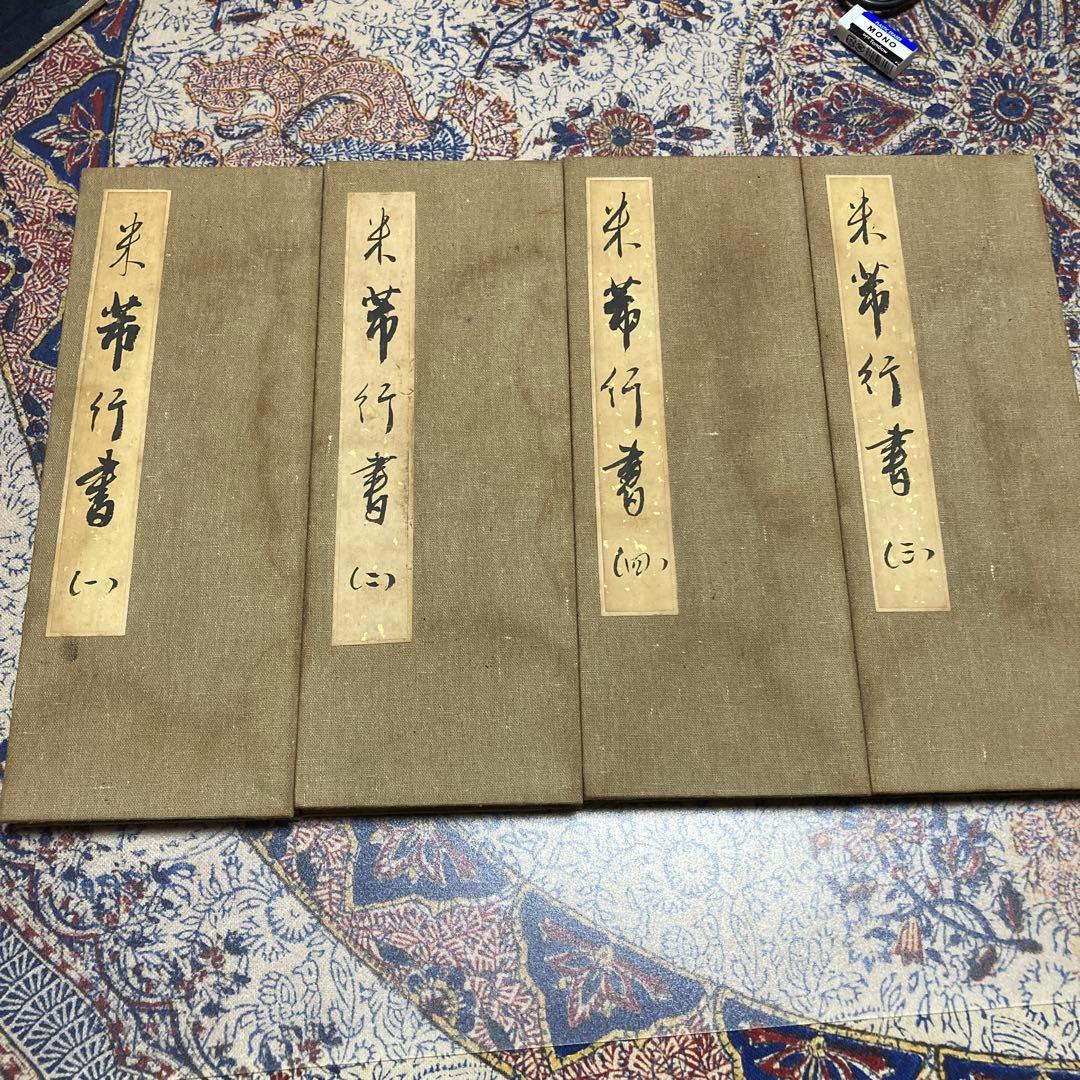 米芾行書(一)
米芾行書(二)
米芾行書(四)
米芾行書(三)
MONO